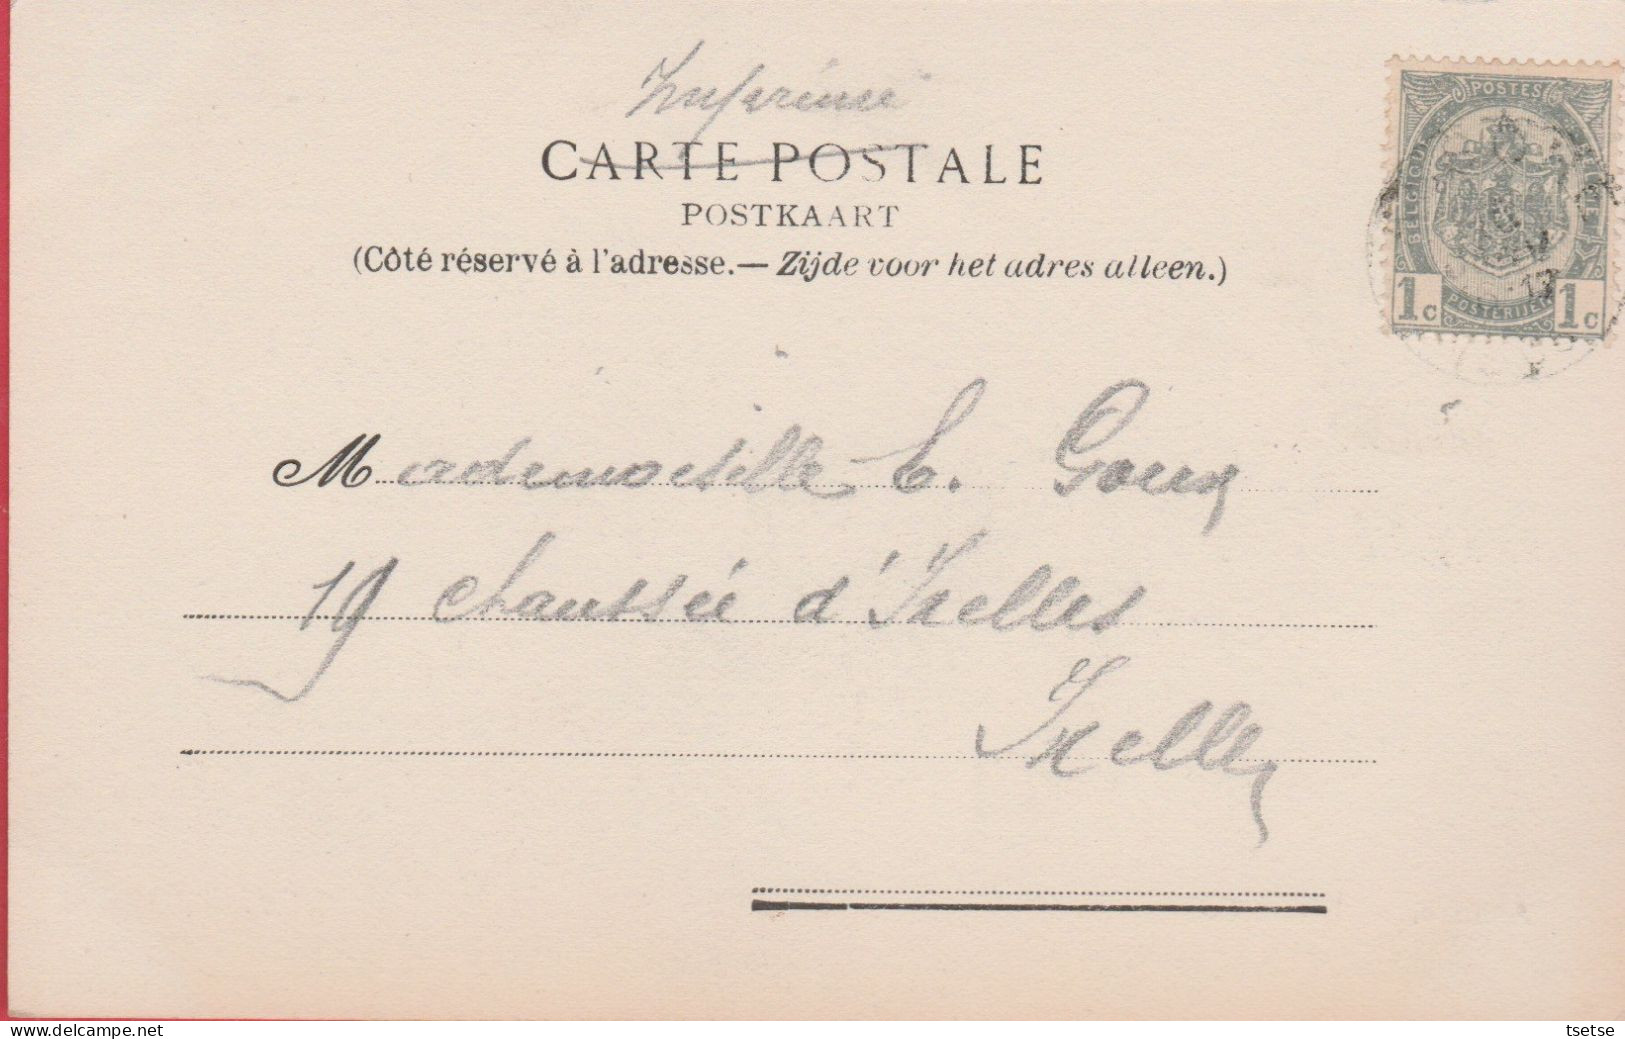 Imprimée
CARTE POSTALE
POSTKAART
(Côté réservé à l'adresse.— Zijde voor het adres alleen.)
POSTES
BELGIQUE
1c POSTERIJEN 1c
Mademoiselle C.
19 chaussée d'Ixelles
Ixelles
www.delcampe.net
tsetse